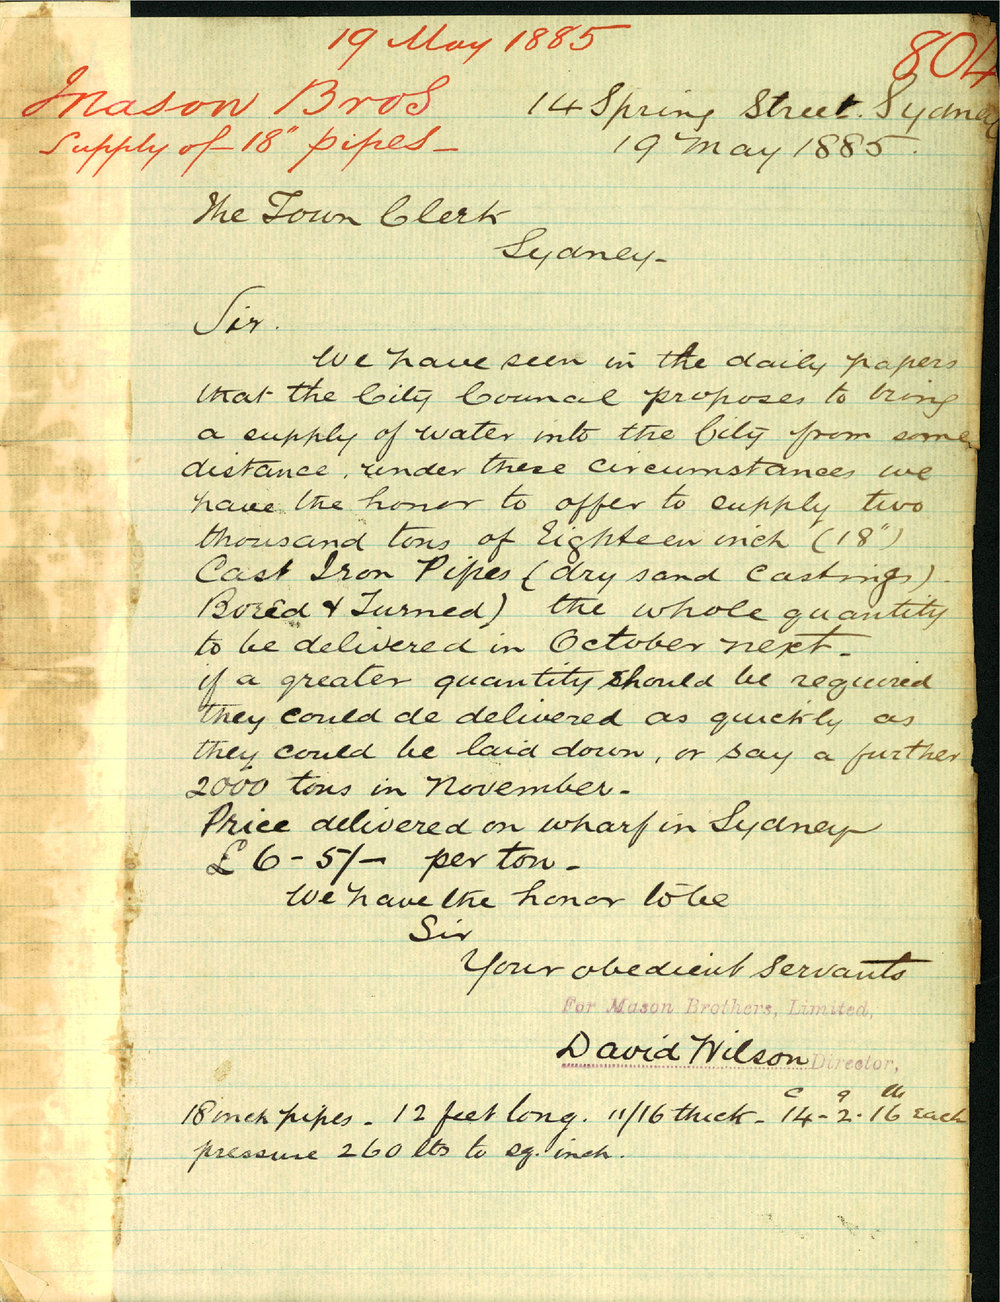 19 May 1885
804
Mason Bros
14 Spring Street. Sydney
Supply of 18" pipes -
19 May 1885.
The Town Clerk
Sydney -
Sir.
We have seen in the daily papers
that the City Council proposes to bring
a supply of water into the City from some
distance, under these circumstances we
have the honor to offer to supply two
thousand tons of Eighteen inch (18")
Cast Iron Pipes (dry sand castings)
Bored & Turned) the whole quantity
to be delivered in October next. -
if a greater quantity should be required
they could de delivered as quickly as
they could be laid down, or say a further
2000 tons in November. -
Price delivered on wharf in Sydney
£6-5/- per ton -
We have the honor to be
Sir
Your obedient servants
For Mason Brothers, Limited,
David Wilson Director,
C q lb
18 inch pipes - 12 feet long. 11/16 thick - 14-2-16 each
pressure 260 lbs to sq. inch.